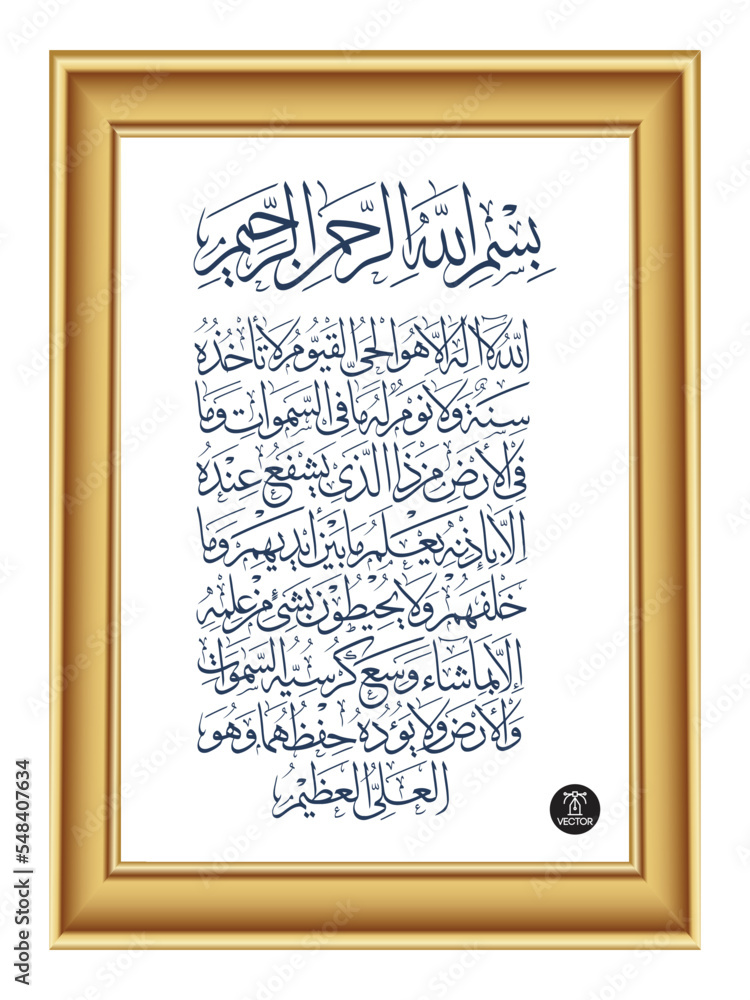 بِسْمِ اللَّهِ الرَّحْمَنِ الرَّحِيمِ
اللّٰهُ لَا إِلٰهَ إِلَّا هُوَ الْحَىُّ الْقَيُّومُ لَا تَأْخُذُهُ
سِنَةٌ وَلَا نَوْمٌ لَهُ مَا فِى السَّمٰوَاتِ وَمَا
فِى الْأَرْضِ مَنْ ذَا الَّذِى يَشْفَعُ عِنْدَهُ
إِلَّا بِإِذْنِهِ يَعْلَمُ مَا بَيْنَ أَيْدِيهِمْ وَمَا
خَلْفَهُمْ وَلَا يُحِيطُونَ بِشَىْءٍ مِنْ عِلْمِهِ
إِلَّا بِمَا شَاءَ وَسِعَ كُرْسِيُّهُ السَّمٰوَاتِ
وَالْأَرْضَ وَلَا يَؤُدُهُ حِفْظُهُمَا وَهُوَ
الْعَلِىُّ الْعَظِيمُ
VECTOR
Adobe Stock | #548407634
Adobe Stock